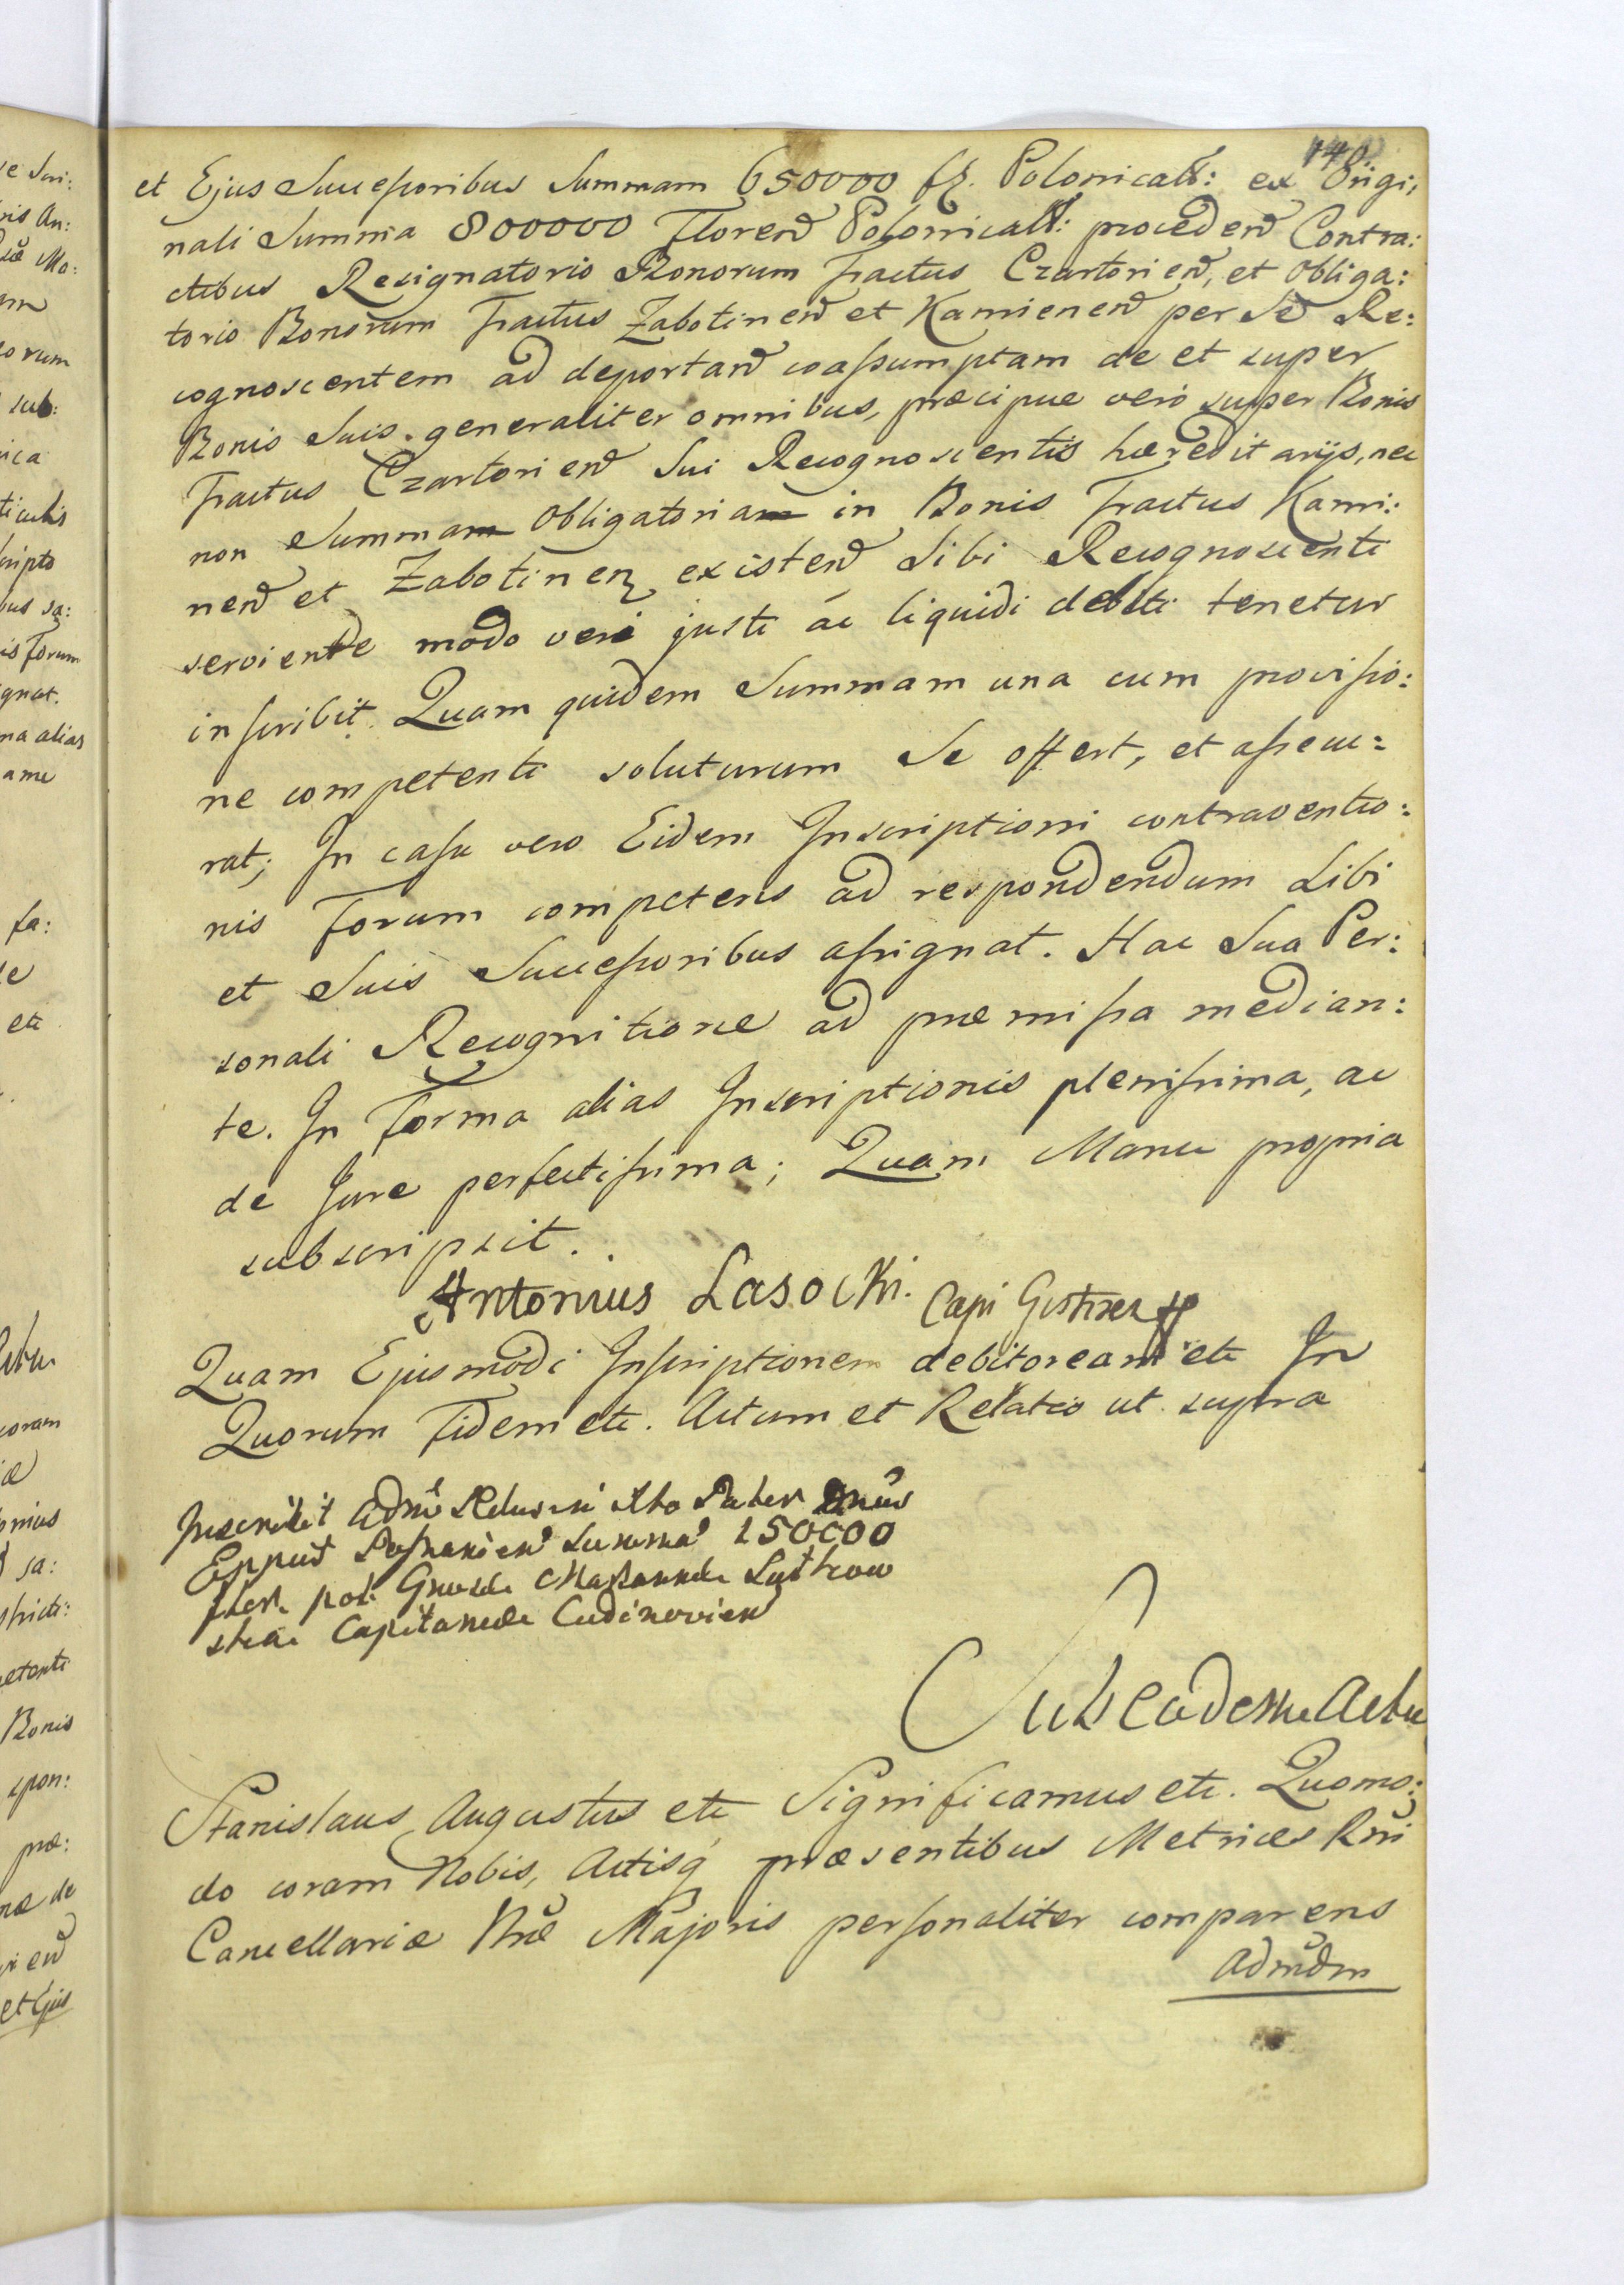 140.
et Ejus Successoribus Summam 650000 fl. Polonicall: ex Origi:
nali Summa 800000 Floren Polonicall: proceden Contra:
ctibus Resignatorio Bonorum Tractus Czartorien, et Obliga:
torio Bonorum Tractus Zabotinen et Kamienen per Se Re:
cognoscentem ad deportan coassumptam de et super
Bonis Suis generaliter omnibus, præcipue vero super Bonis
Tractus Czartorien Sui Recognoscentis hæreditarijs, nec
non Summam Obligatoriam in Bonis Tractus Kami:
nen et Zabotinen existen Sibi Recognoscenti
serviente modo veri justi ac liquidi debiti tenetur
inscribit. Quam quidem Summam una cum provisio:
ne competenti soluturum Se offert, et assecu:
rat; In casu vero Eidem Inscriptioni contraventio:
nis Forum competens ad respondendum Sibi
et Suis Successoribus assignat. Hac Sua Per:
sonali Recognitione ad præmissa median:
te. In Forma alias Inscriptionis plenissima, ac
de Jure perfectissima; Quam Manu propria
subscripsit.
Antonius Lasocki. Capi Gostinen
Quam Ejusmodi Inscriptionem debitoream etc In
Quorum Fidem etc. Actum et Relatio ut supra
Inscribit
Summa 150000
flor. pol.
Capitanede
Sub eodem Actu
Stanislaus Augustus etc Significamus etc. Quomo:
do coram Nobis, Actisq præsentibus Metrices Rni
Cancellariæ Nræ Majoris personaliter comparens
Admdm
e Scri:
ris An:
Mo:
orum
sub:
ica
ticulis
scripto
bus sa:
is Forum
ignat.
ma alias
fa:
etc
Actu
coram
onius
sa:
stricti:
petenti
Bonis
spon:
præ:
næ de
et Ejus